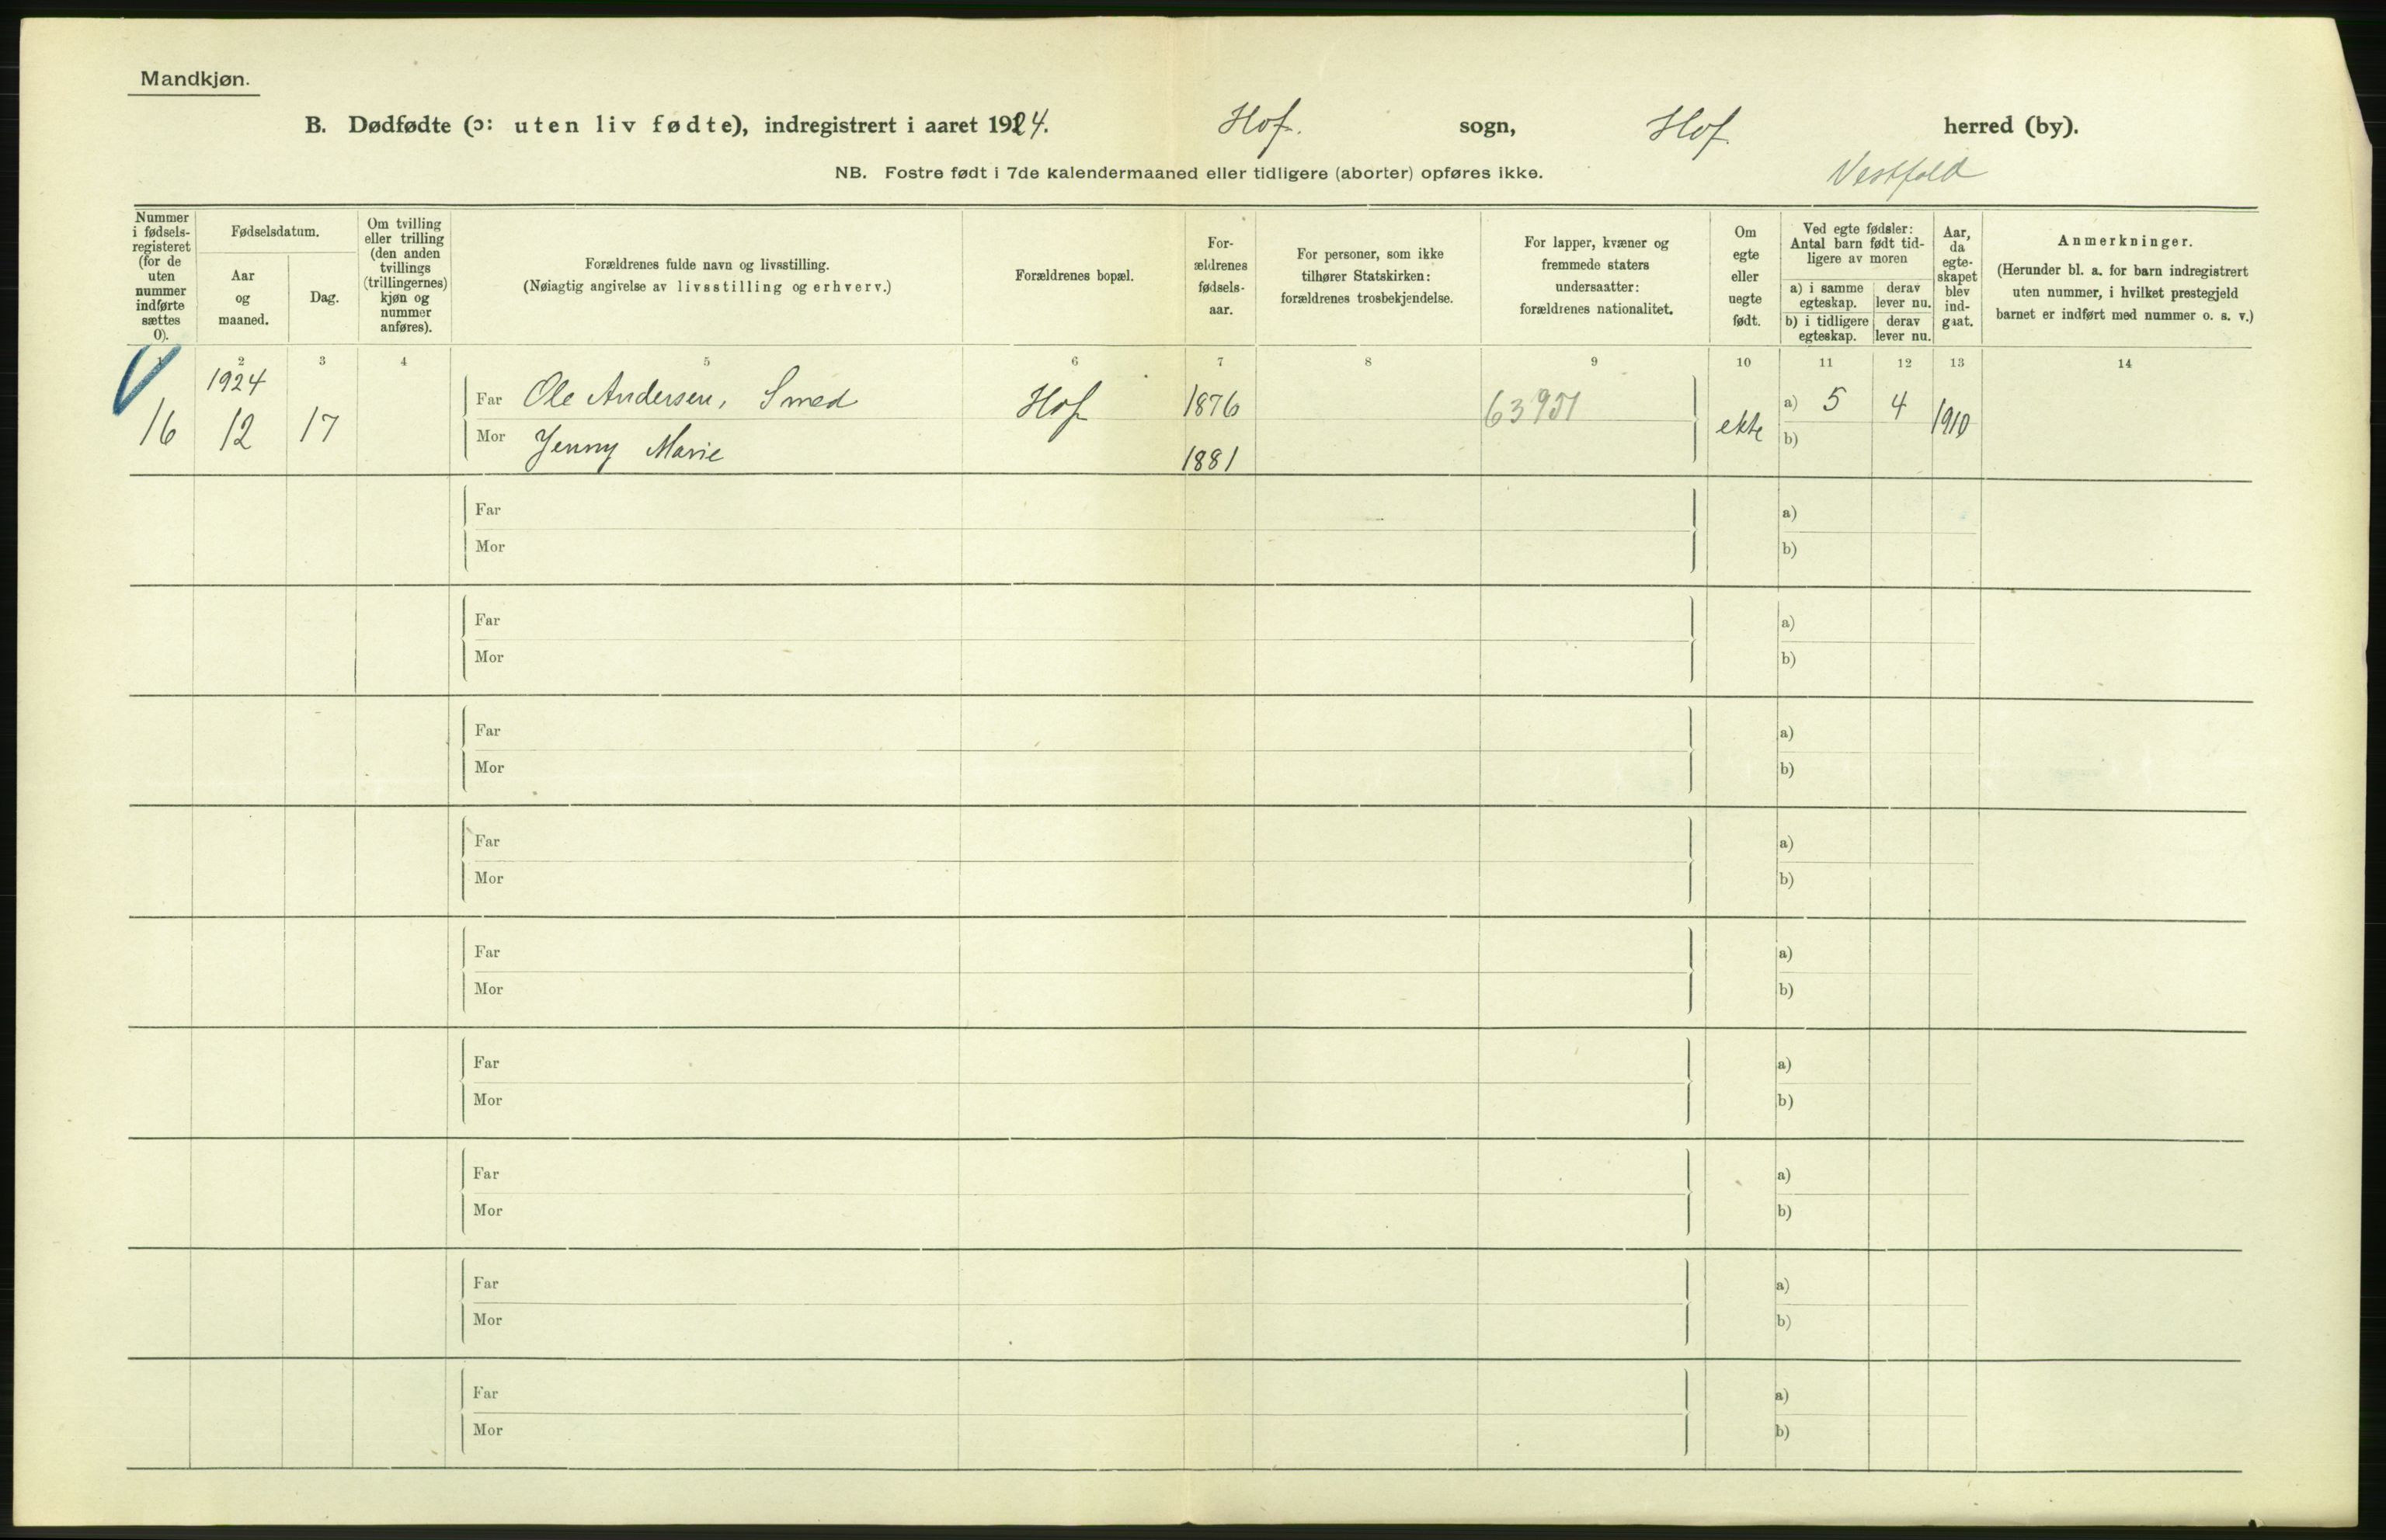 Mandkjøn.
B. Dødfødte (ɔ: uten liv fødte), indregistrert i aaret 1924. Hof. sogn, Hof herred (by).
NB. Fostre født i 7de kalendermaaned eller tidligere (aborter) opføres ikke.
Vestfold
Nummer
i fødsels-
registeret
(for de
uten
nummer
indførte
sættes
0).
Fødselsdatum.
Aar
og
maaned.
Dag.
Om tvilling
eller trilling
(den anden
tvillings
(trillingernes)
kjøn og
nummer
anføres).
Forældrenes fulde navn og livsstilling.
(Nøiagtig angivelse av livsstilling og erhverv.)
Forældrenes bopæl.
For-
ældrenes
fødsels-
aar.
For personer, som ikke
tilhører Statskirken:
forældrenes trosbekjendelse.
For lapper, kvæner og
fremmede staters
undersaatter:
forældrenes nationalitet.
Om
egte
eller
uegte
født.
Ved egte fødsler:
Antal barn født tid-
ligere av moren
a) i samme
egteskap.
derav
lever nu.
b) i tidligere
egteskap.
derav
lever nu.
Aar,
da
egte-
skapet
blev
ind-
gaat.
Anmerkninger.
(Herunder bl. a. for barn indregistrert
uten nummer, i hvilket prestegjeld
barnet er indført med nummer o. s. v.)
1 2 3 4 5 6 7 8 9 10 11 12 13 14
1924
16 12 17 Far Ole Andersen, Smed Hof 1876 63951 ekte a) 5 4 1910
Mor Jenny Marie 1881 b)
Far a)
Mor b)
Far a)
Mor b)
Far a)
Mor b)
Far a)
Mor b)
Far a)
Mor b)
Far a)
Mor b)
Far a)
Mor b)
Far a)
Mor b)
Far a)
Mor b)